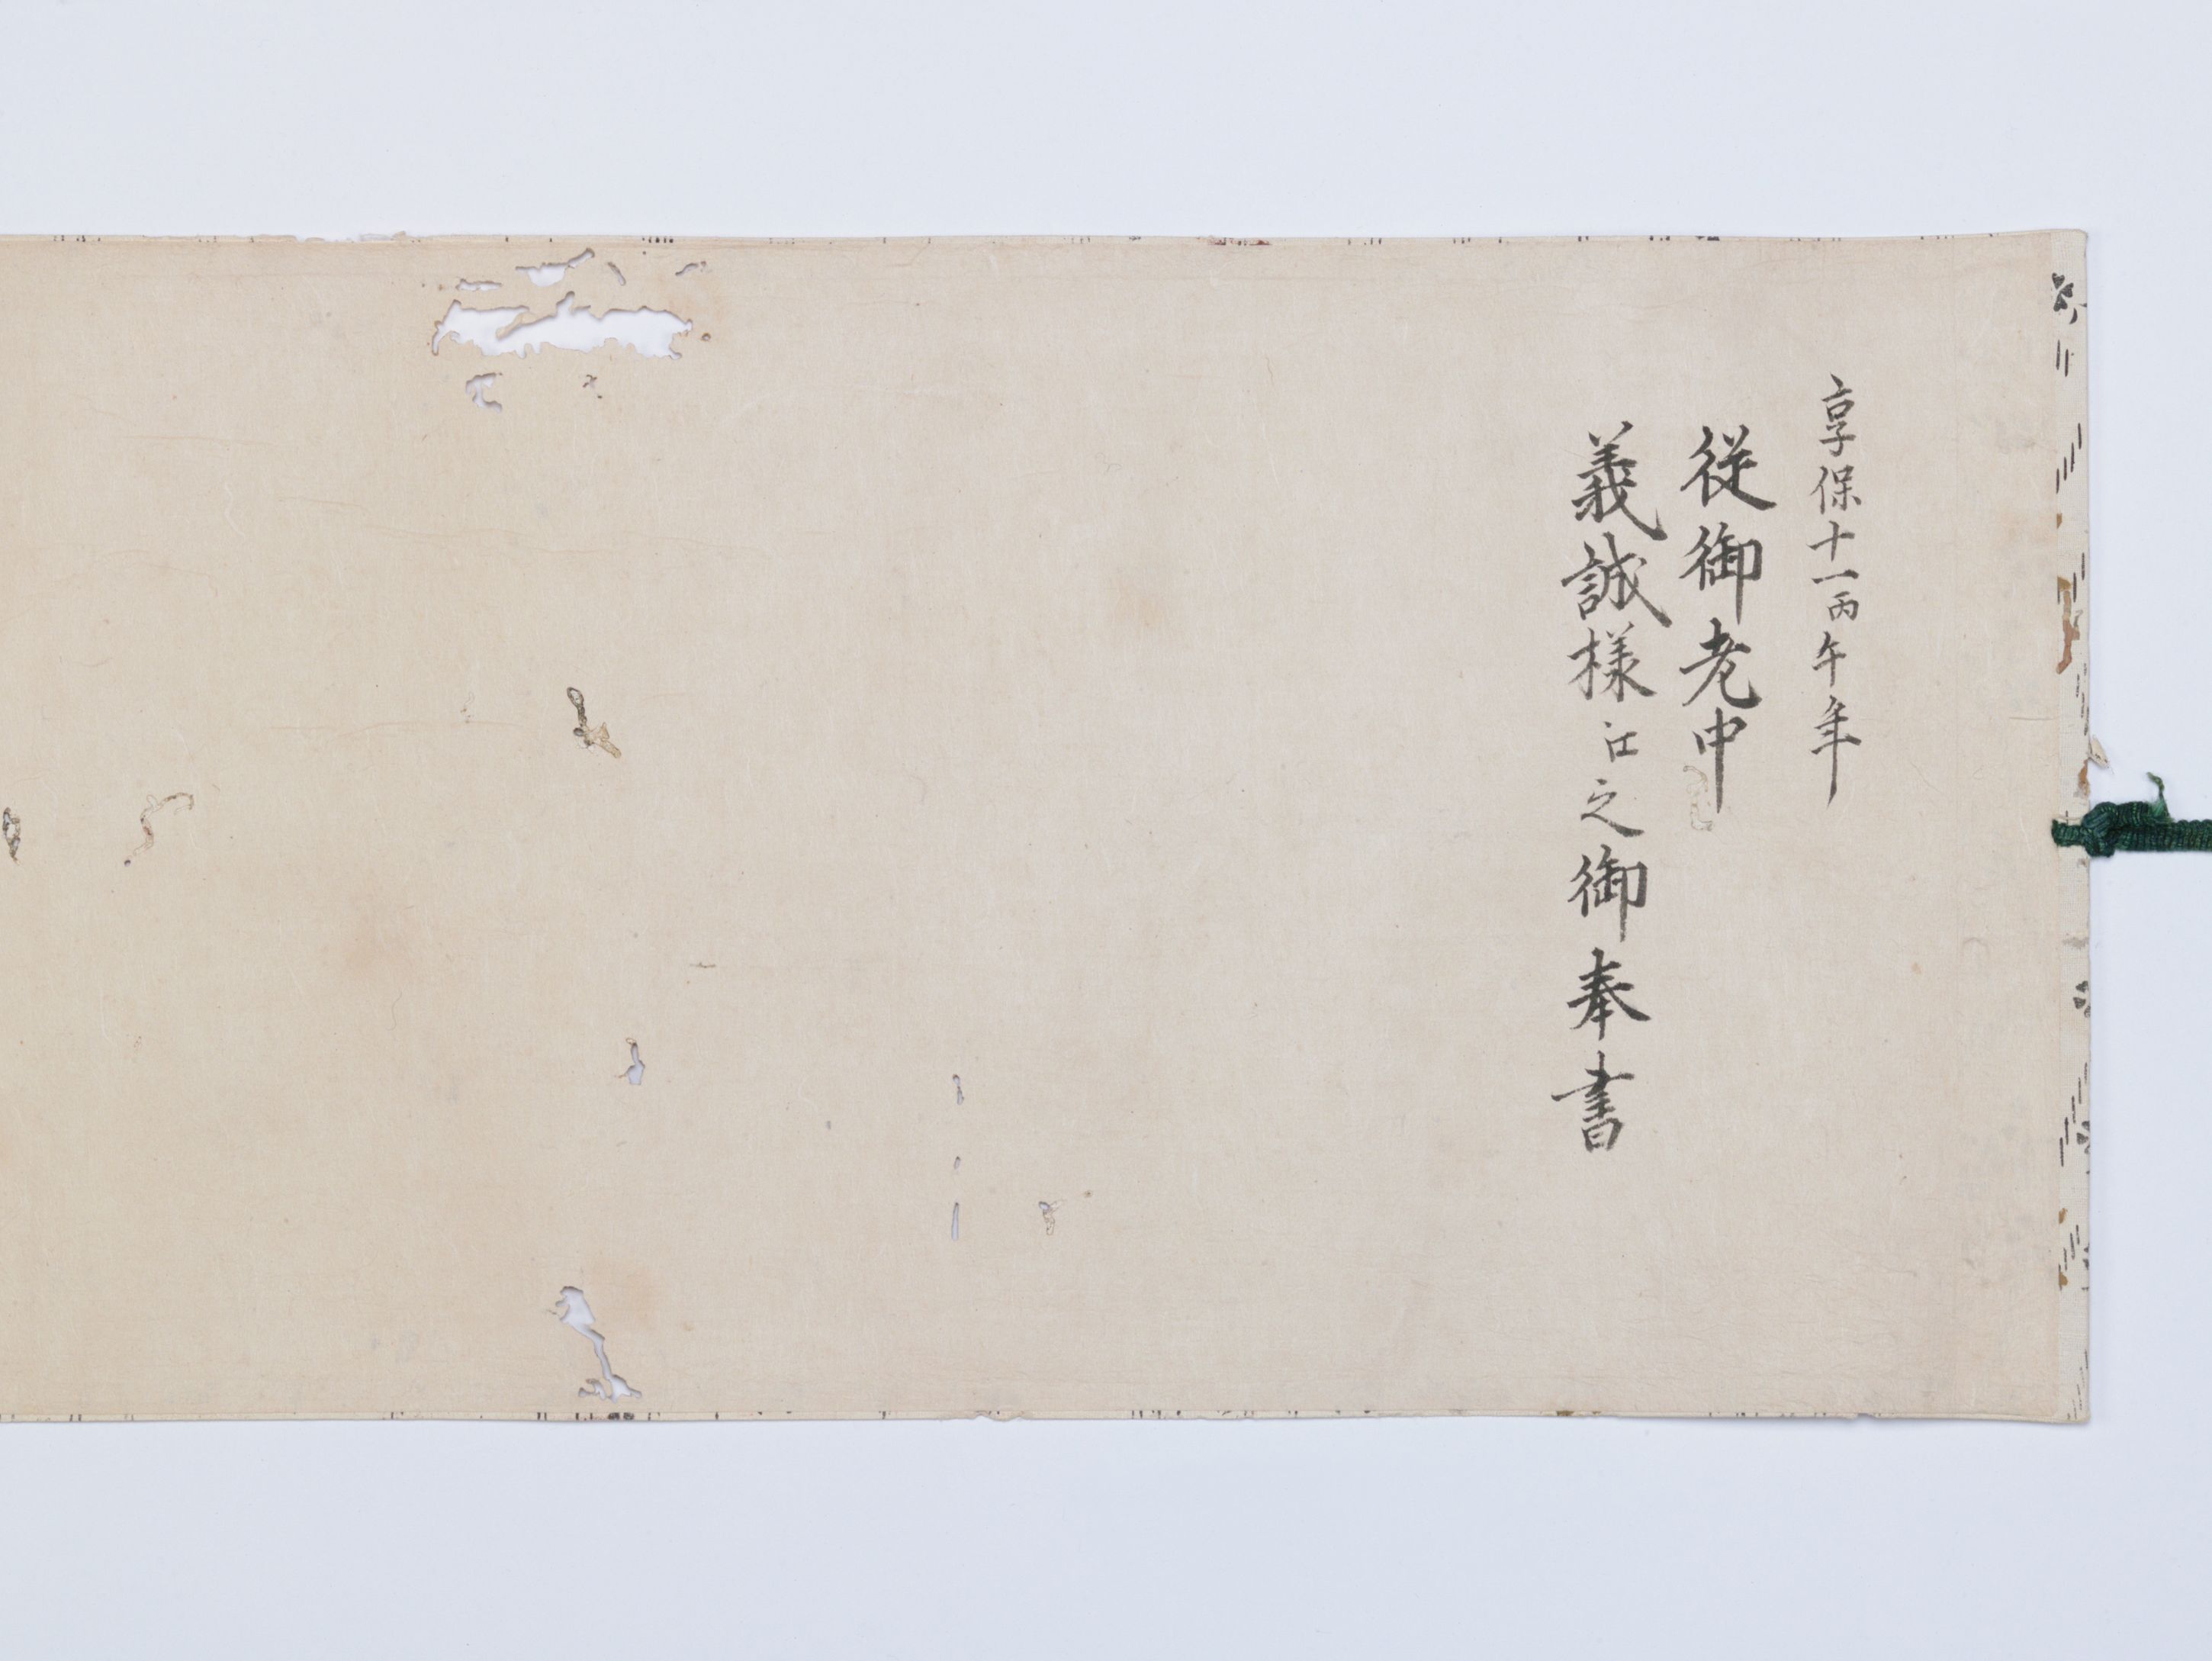 享保十一丙午年
従御老中
義誠様江之御奉書